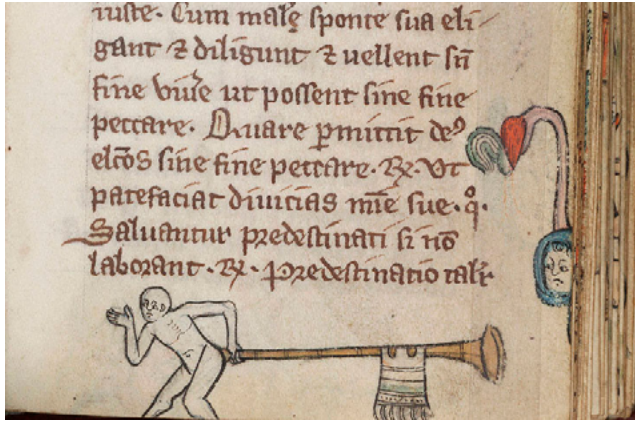 iuste. Cum malę sponte sua eli-
gant ⁊ diligunt ⁊ uellent sn̄
fine viu͛e ut possent sine fine
peccare. Quare ꝑmittit deꝰ
elc̄os sine fine peccare. ℞. Vt
patefaciat diuicias mīe sue. q̊.
Saluantur predestinati si nō
laborant. ℞. Predestinatio tali